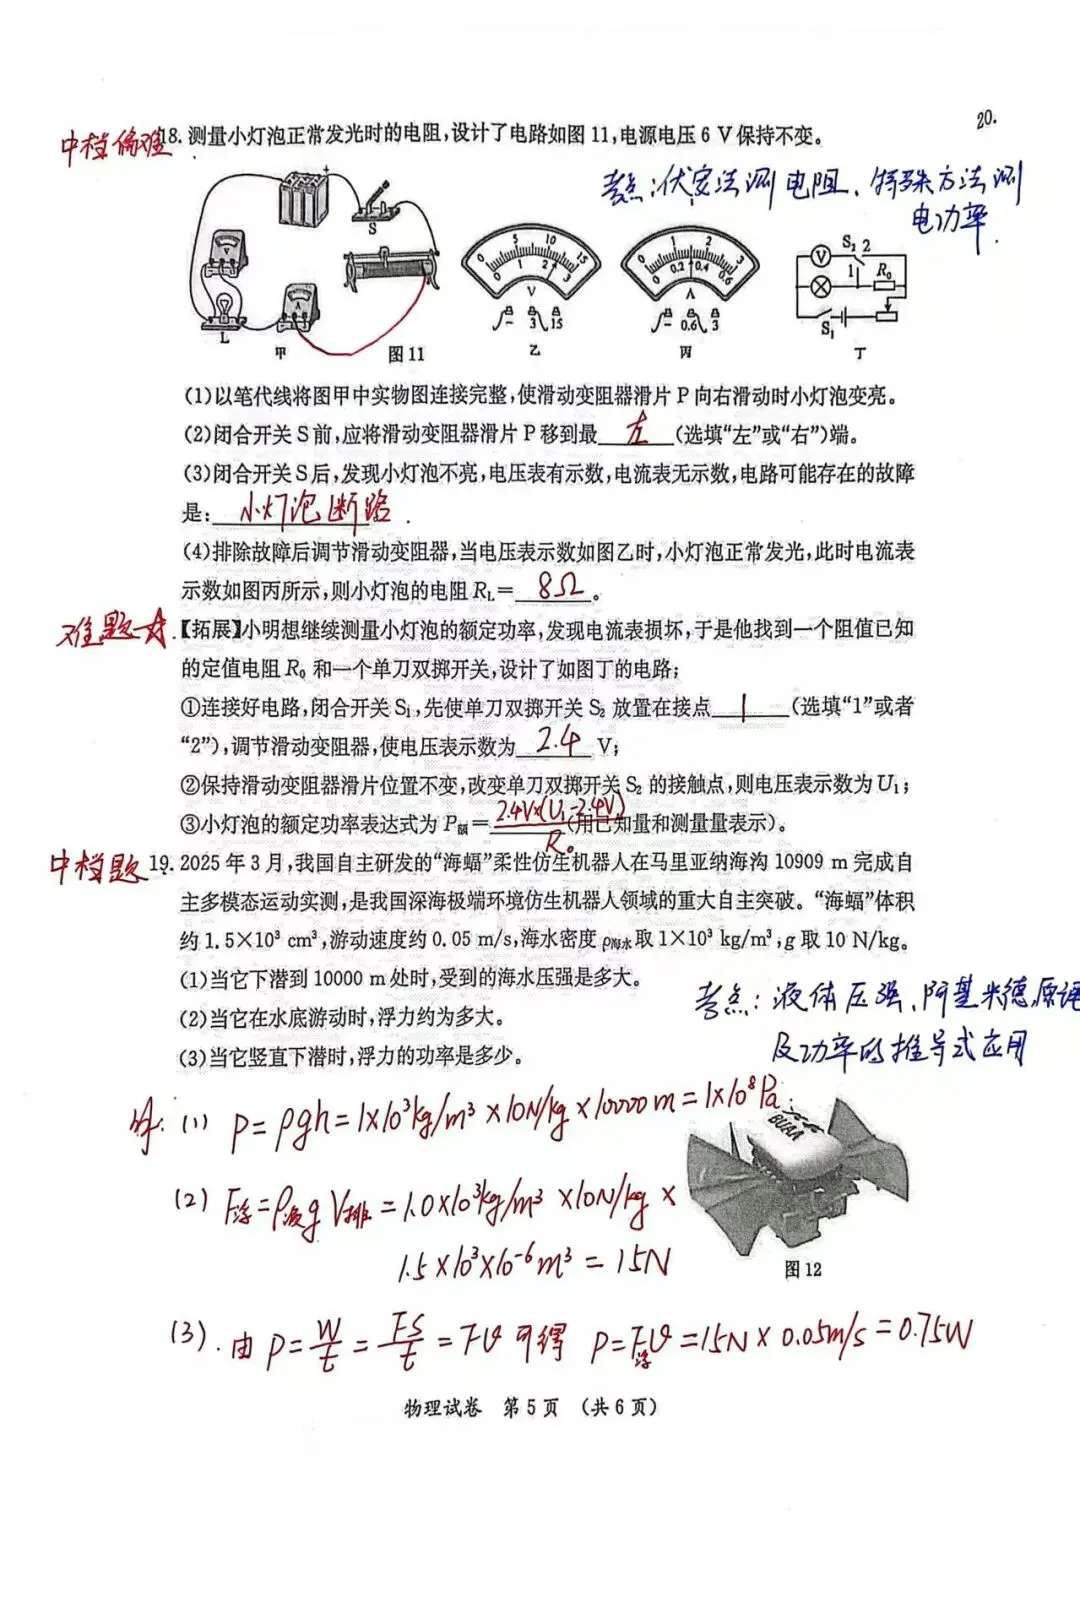 20.
中档偏难 18. 测量小灯泡正常发光时的电阻,设计了电路如图 11,电源电压 6 V 保持不变。
考点:伏安法测电阻、特殊方法测
电功率.
S
L
甲
图 11
0 5 10 15
0 1 2 3
V
- 3 15
乙
0 1 2 3
0 0.2 0.4 0.6
A
- 0.6 3
丙
V S₂ 2
1 R₀
S₁
丁
(1)以笔代线将图甲中实物图连接完整,使滑动变阻器滑片 P 向右滑动时小灯泡变亮。
(2)闭合开关 S 前,应将滑动变阻器滑片 P 移到最 左 (选填“左”或“右”)端。
(3)闭合开关 S 后,发现小灯泡不亮,电压表有示数,电流表无示数,电路可能存在的故障
是: 小灯泡断路 .
(4)排除故障后调节滑动变阻器,当电压表示数如图乙时,小灯泡正常发光,此时电流表
示数如图丙所示,则小灯泡的电阻 R_L= 8Ω 。
难题☆ 【拓展】小明想继续测量小灯泡的额定功率,发现电流表损坏,于是他找到一个阻值已知
的定值电阻 R₀ 和一个单刀双掷开关,设计了如图丁的电路;
①连接好电路,闭合开关 S₁,先使单刀双掷开关 S₂ 放置在接点 1 (选填“1”或者
“2”),调节滑动变阻器,使电压表示数为 2.4 V;
②保持滑动变阻器滑片位置不变,改变单刀双掷开关 S₂ 的接触点,则电压表示数为 U₁;
③小灯泡的额定功率表达式为 P额= 2.4V×(U₁-2.4V)/R₀ (用已知量和测量量表示)。
中档题 19. 2025 年 3 月,我国自主研发的“海蝠”柔性仿生机器人在马里亚纳海沟 10909 m 完成自
主多模态运动实测,是我国深海极端环境仿生机器人领域的重大自主突破。“海蝠”体积
约 1.5×10³ cm³,游动速度约 0.05 m/s,海水密度 ρ海水取 1×10³ kg/m³,g 取 10 N/kg。
(1)当它下潜到 10000 m 处时,受到的海水压强是多大。
(2)当它在水底游动时,浮力约为多大。
(3)当它竖直下潜时,浮力的功率是多少。
考点:液体压强、阿基米德原理
及功率的推导式应用
解:(1) P=ρgh=1×10³kg/m³×10N/kg×10000m=1×10⁸Pa.
(2) F浮=ρ液gV排=1.0×10³kg/m³×10N/kg×
1.5×10³×10⁻⁶m³=15N
BUAA
图 12
(3).由 P=W/t=FS/t=Fv 可得 P=F浮v=15N×0.05m/s=0.75W
物理试卷 第 5 页 (共 6 页)